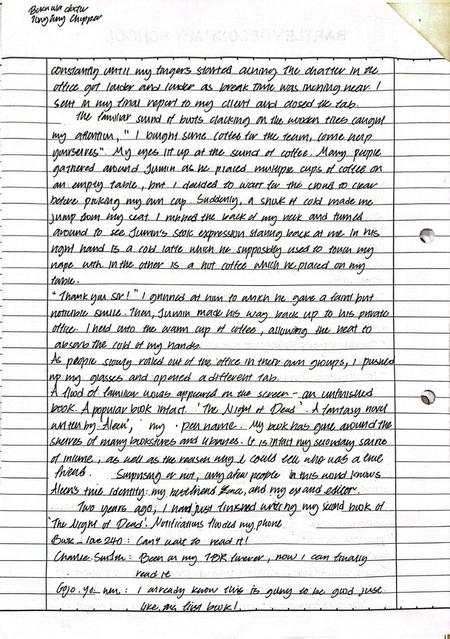 constantly until my fingers started aching. The chatter in the
office got louder and louder as break time was inching near. I
sent in my final report to my client and closed the tab.
The familiar sound of boots clacking on the wooden tiles caught
my attention, " I bought some coffee for the team, come help
yourselves". My eyes lit up at the sound of coffee. Many people
gathered around Jumin as he placed multiple cups of coffee on
an empty table, but I decided to wait for the crowd to clear
before picking my own cup. Suddenly, a shock of cold made me
jump down my seat. I rubbed the back of my neck and turned
around to see Jumin's stoic expression staring back at me. In his
right hand is a cold latte which he supposedly used to touch my
nape with. In the other is a hot coffee which he placed on my
table.
"Thank you Sir!" I grinned at him to which he gave a faint but
noticible smile. Then, Jumin made his way back up to his private
office. I held onto the warm cup of coffee, allowing the heat to
absorb the cold of my hands.
As people slowly rolled out of the office in their own groups, I pushed
up my glasses and opened a different tab.
A flood of familiar words appeared on the screen - an unfinished
book. A popular book infact. 'The Night of Dead'. A fantasy novel
written by 'Aleen', my pen name. My book has gone around the
shelves of many bookstores and libraries. It is infact my secondary source
of income, as well as the reason why I could tell who was a true
friend. Surprising or not, only a few people in this world knows
Aleen's true identity: my bestfriend and my ex and editor.
Two years ago, I had just finished writing my second book of
'The Night of Dead'. Notifications flooded my phone
240: Can't wait to read it!
Charlie. : Been on my TBR forever, now I can finally
read it
Gojo. : I already know this is going to be good just
like the first book!